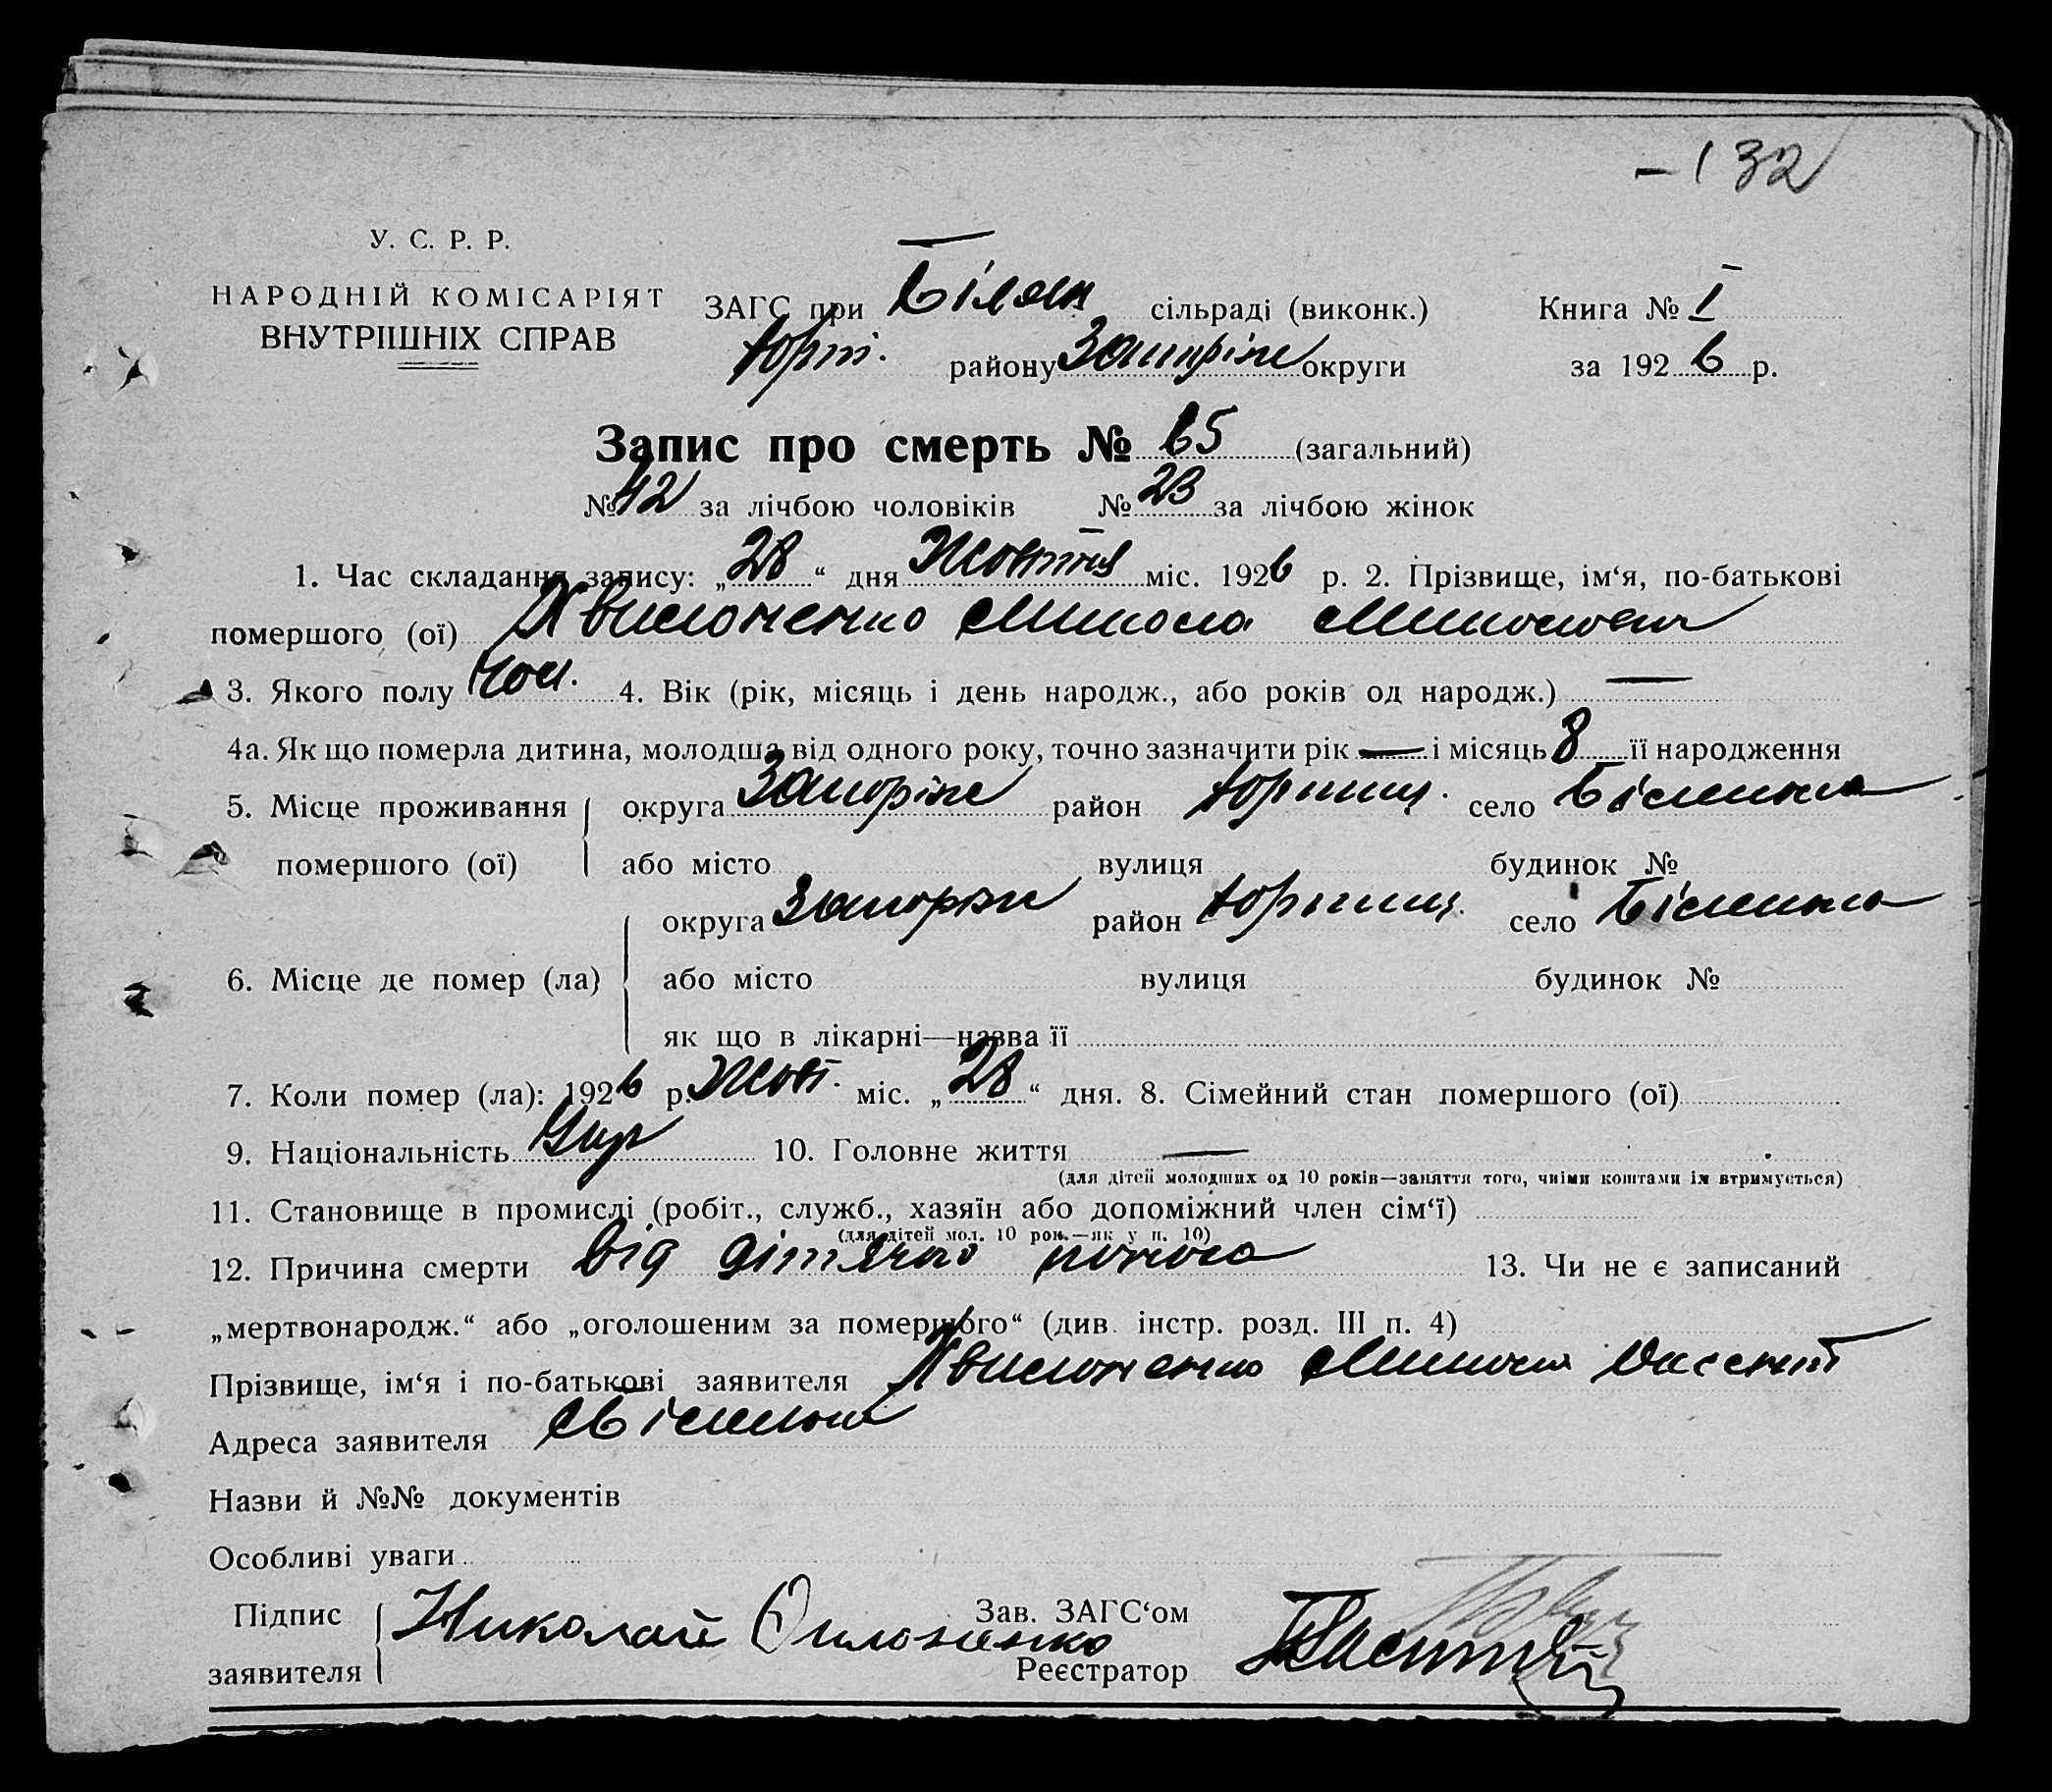 -132
У. С. Р. Р.
НАРОДНІЙ КОМІСАРІЯТ
ВНУТРІШНІХ СПРАВ
ЗАГС при Білен сільраді (виконк.) Книга № I
району Запоріж округи за 1926 р.
Запис про смерть № 65 (загальний)
№ 42 за лічбою чоловіків № 23 за лічбою жінок
1. Час складання запису: „28“ дня Жовтня міс. 1926 р. 2. Прізвище, ім‘я, по-батькові
помершого (ої) Микола
3. Якого полу Чол. 4. Вік (рік, місяць і день народж., або років од народж.) —
4а. Як що померла дитина, молодша від одного року, точно зазначити рік — і місяць 8 її народження
5. Місце проживання округа Запоріж район село Біленька
помершого (ої) або місто вулиця будинок №
округа Запоріж район село Біленька
6. Місце де помер (ла) або місто вулиця будинок №
як що в лікарні—назва її
7. Коли помер (ла): 1926 р. Жовт. міс. „28“ дня. 8. Сімейний стан помершого (ої)
9. Національність Укр 10. Головне життя —
(для дітей молодших од 10 років—заняття того, чиїми коштами їх втримується)
11. Становище в промислі (робіт., служб., хазяїн або допоміжний член сім‘ї)
(для дітей мол. 10 рок.—як у п. 10)
12. Причина смерти від дітячого поноса 13. Чи не є записаний
„мертвонародж.“ або „оголошеним за помершого“ (див. інстр. розд. III п. 4)
Прізвище, ім‘я і по-батькові заявителя Микола
Адреса заявителя с Біленька
Назви й №№ документів
Особливі уваги
Підпис Николай Зав. ЗАГС‘ом
заявителя Реєстратор